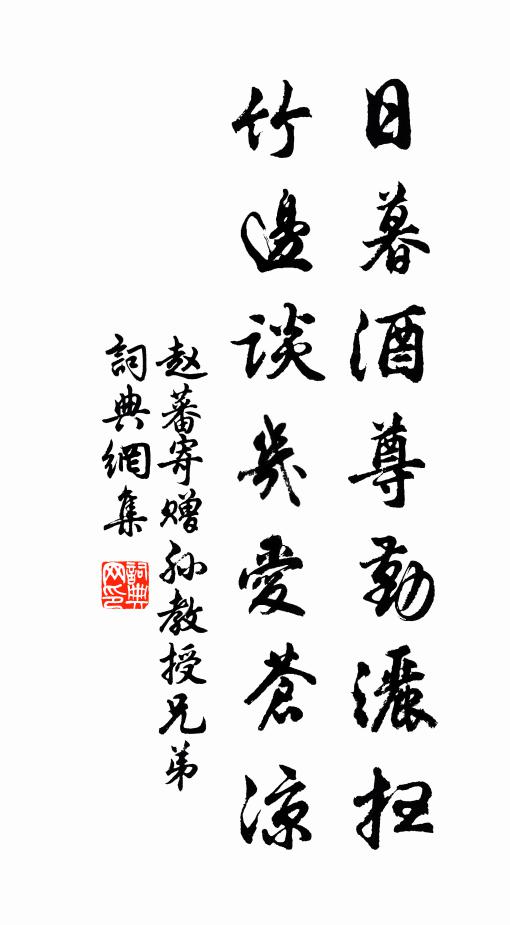 日暮酒尊勤灑扫
竹邊談㡬愛蒼涼
赵蕃寄赠孙教授兄弟
詞典網集
詞典网印